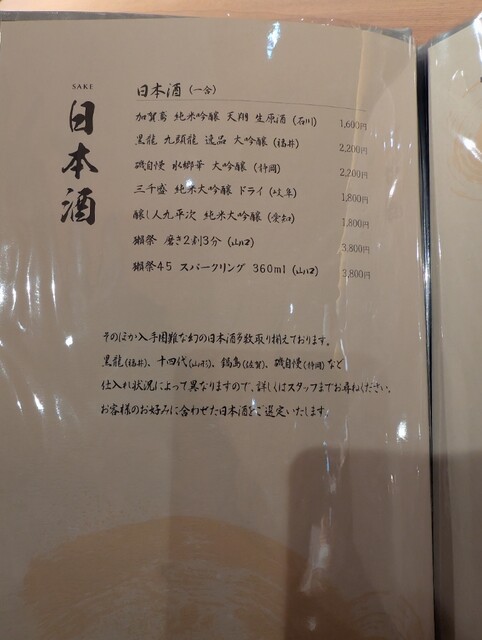 SAKE
日本酒
日本酒 (一合)
加賀鳶 純米吟醸 天翔 生原酒 (石川) 1,600円
黒龍 九頭龍 逸品 大吟醸 (福井) 2,200円
磯自慢 水郷華 大吟醸 (静岡) 2,200円
三千盛 純米大吟醸 ドライ (岐阜) 1,800円
醸し人九平次 純米大吟醸 (愛知) 1,800円
獺祭 磨き2割3分 (山口) 3,800円
獺祭45 スパークリング 360ml (山口) 3,800円
そのほか入手困難な幻の日本酒多数取り揃えております。
黒龍(福井)、十四代(山形)、鍋島(佐賀)、磯自慢(静岡)など
仕入れ状況によって異なりますので、詳しくはスタッフまでお尋ねください。
お客様のお好みに合わせた日本酒をご選定いたします。